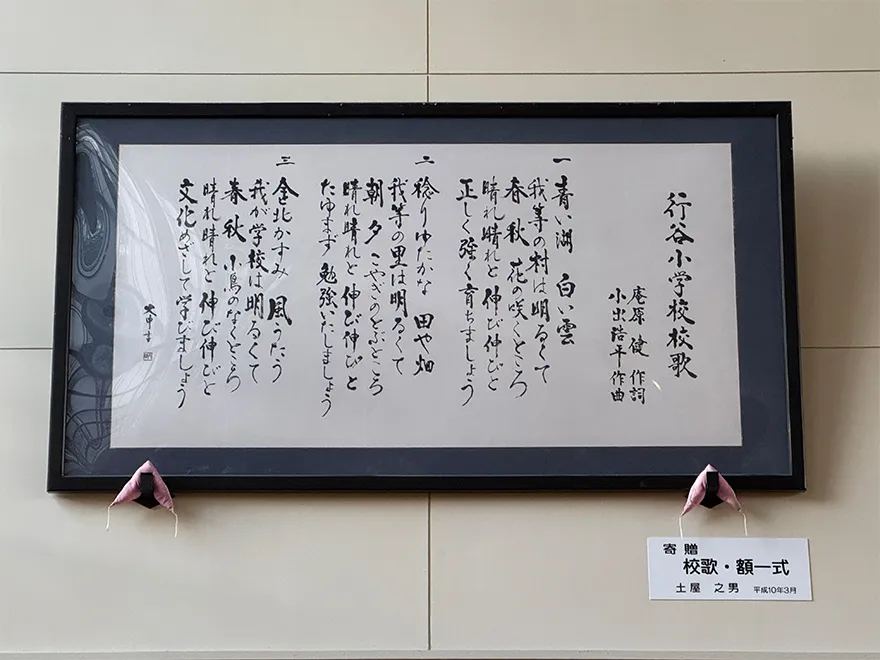 行谷小学校校歌
庵原 健 作詞
小出浩平 作曲
一 青い湖 白い雲
我等の村は明るくて
春秋 花の咲くところ
晴れ晴れと 伸び伸びと
正しく強く育ちましょう
二 稔りゆたかな 田や畑
我等の里は明るくて
朝夕 こやぎのとぶところ
晴れ晴れと 伸び伸びと
たゆまず 勉強いたしましょう
三 金北かすみ 風うたう
我が学校は明るくて
春秋 小鳥のなくところ
晴れ晴れと 伸び伸びと
文化めざして学びましょう
寄贈
校歌・額一式
土屋 之男 平成10年3月